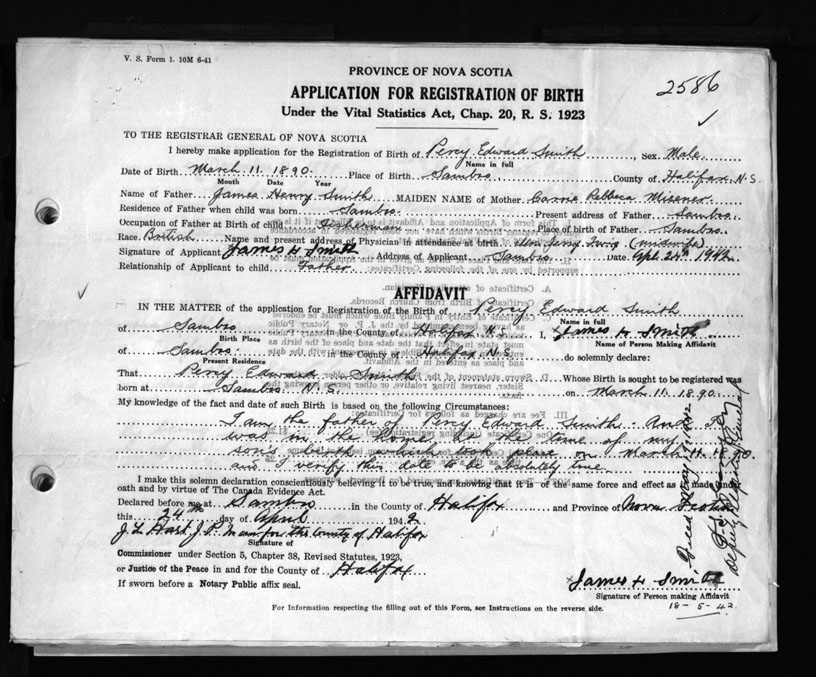 V. S. Form 1. 10M 6-41
PROVINCE OF NOVA SCOTIA
2586
APPLICATION FOR REGISTRATION OF BIRTH
Under the Vital Statistics Act, Chap. 20, R. S. 1923
TO THE REGISTRAR GENERAL OF NOVA SCOTIA
I hereby make application for the Registration of Birth of Percy Edward Smith, Sex Male
Name in full
Date of Birth March 11. 1890. Place of Birth Sambro County of Halifax, N.S.
Month Date Year
Name of Father James Henry Smith MAIDEN NAME of Mother Carrie Misener
Residence of Father when child was born Sambro Present address of Father Sambro.
Occupation of Father at Birth of child Fisherman Place of birth of Father Sambro.
Race British Name and present address of Physician in attendance at birth (midwife)
Signature of Applicant James H Smith Address of Applicant Sambro Date Apl. 24th 1942
Relationship of Applicant to child Father
AFFIDAVIT
IN THE MATTER of the application for Registration of the Birth of Percy Edward Smith
Name in full
of Sambro in the County of Halifax, N.S. I, James H Smith
Birth Place Name of Person Making Affidavit
of Sambro. in the County of Halifax N.S. do solemnly declare:
Present Residence
That Percy Edward Smith Whose Birth is sought to be registered was
born at Sambro N.S. on March 11. 1890.
My knowledge of the fact and date of such Birth is based on the following Circumstances:
I am the father of Percy Edward Smith. And I
was in the home at the time of my
son's birth which took place on March 11. 1890.
and I verify this date to be absolutely true.
I make this solemn declaration conscientiously believing it to be true, and knowing that it is of the same force and effect as if made under
oath and by virtue of The Canada Evidence Act.
Declared before me at Sambro in the County of Halifax and Province of Nova Scotia
this 24th day of April 1942
J. L. Hart J.P. in and for the County of Halifax
Signature of
Commissioner under Section 5, Chapter 38, Revised Statutes, 1923,
or Justice of the Peace in and for the County of Halifax
If sworn before a Notary Public affix seal.
James H Smith
Signature of Person making Affidavit
18-5-42.
For Information respecting the filling out of this Form, see Instructions on the reverse side.
Deputy Registrar General